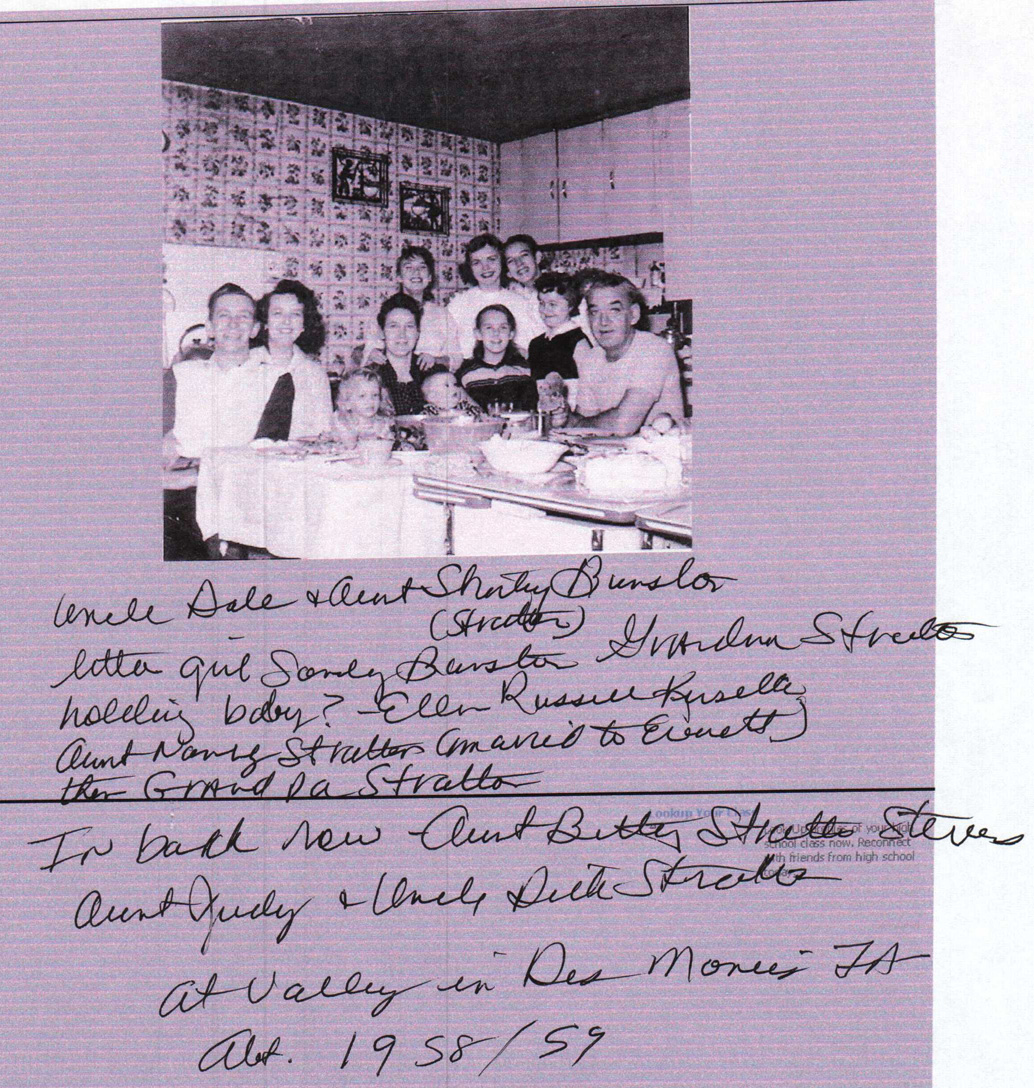 Uncle Dale & Aunt Shirley Bunstor
(Stratton)
little girl Sandy Bunstor Grandma Stratton
holding baby? - Ellen Russell
Aunt Nancy Stratton (married to Everett)
then Grand Pa Stratton
In back row - Aunt Betty Stratton Stevens
Aunt Judy & Uncle Dick Stratton
at Valley in Des Moines IA
Abt. 1958/59
Lookup Your Class
of your high
school class now. Reconnect
with friends from high school